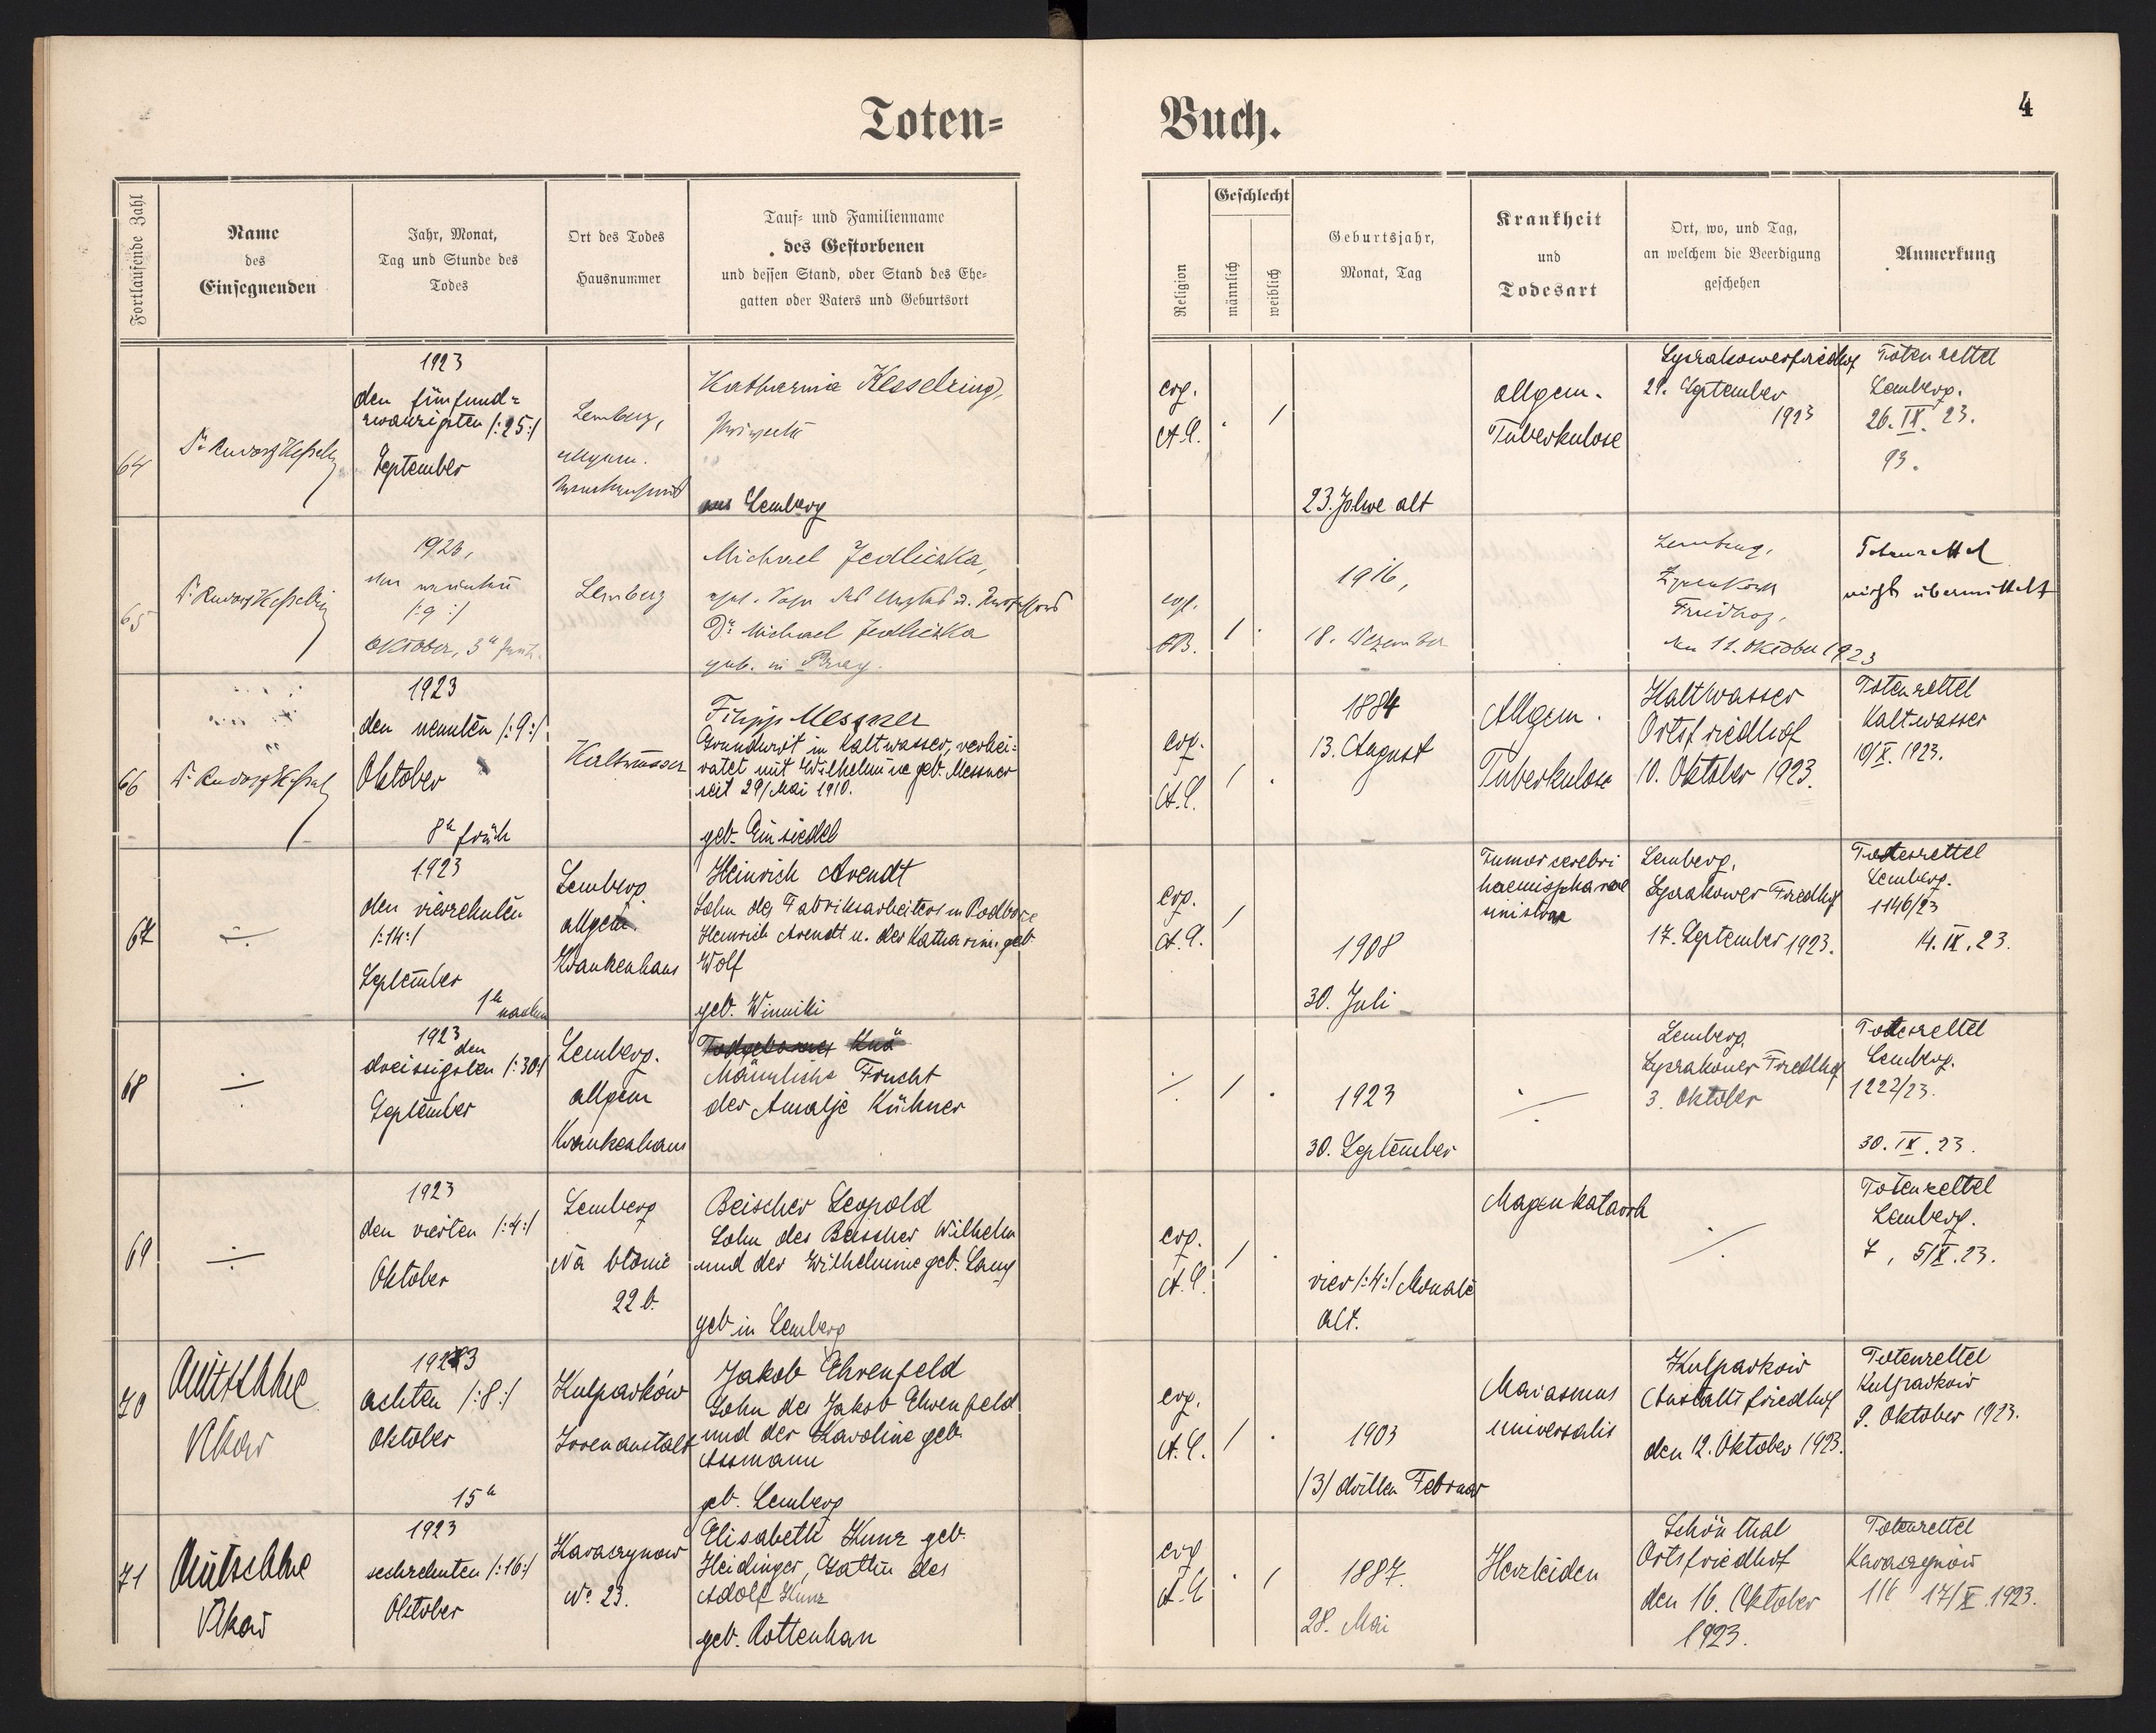 Toten=
Buch.
4
Fortlaufende Zahl
Name
des
Einsegnenden
Jahr, Monat,
Tag und Stunde des
Todes
Ort des Todes
Hausnummer
Tauf= und Familienname
des Gestorbenen
und dessen Stand, oder Stand des Ehe=
gatten oder Vaters und Geburtsort
Religion
Geschlecht
männlich
weiblich
Geburtsjahr,
Monat, Tag
Krankheit
und
Todesart
Ort, wo, und Tag,
an welchem die Beerdigung
geschehen
Anmerkung
64
Dr Rudolf Kesselring
1923
den fünfund=
zwanzigsten /:25:/
September
Lemberg,
allgem.
Katharina Kesselring,
aus Lemberg
ev.
A. C.
/
23. Jahre alt
allgem.
Tuberkulose
Lyczakowerfriedhof
September
1923
Totenzettel
Lemberg.
26. IX. 23.
93.
65
Dr Rudolf Kesselring
1923,
den neunten
/:9:/
Oktober, 3h früh.
Lemberg
Michael Jedlicska,
Dr. Michael Jedlicska
geb. in Prag.
1916,
18. Dezember
Lemberg,
Friedhof,
den 11. Oktober 1923
Totenzettel
nicht übermittelt
66
Dr Rudolf Kesselring
1923
den neunten /:9:/
Oktober
8h früh
Kaltwasser
Filipp Messner
Grundwirt in Kaltwasser, verhei=
ratet mit Wilhelmine geb. Messner
seit 29/Mai 1910.
geb. Einsiedel
ev.
A. C.
/ .
1884
13. August
Allgem.
Tuberkulose
Kaltwasser
Ortsfriedhof
10. Oktober 1923.
Totenzettel
Kaltwasser
10/X. 1923.
67
÷
1923
den vierzehnten
/:14:/
September
1h nachm
Lemberg.
allgem.
Krankenhaus
Heinrich Arendt
Sohn des Fabriksarbeiters in Podborze
Heinrich Arendt u. der Katharina geb
Wolf
geb. Winniki
ev.
A. C.
/
1908
30. Juli
Tumor cerebri
haemisphaerae
sinistrae
Lemberg,
Lyczakower Friedhof
17. September 1923.
Totenzettel
Lemberg.
1146/23
14. IX. 23.
68
÷
1923
den
dreissigsten /:30:/
September
Lemberg.
allgem
Krankenhaus
Männliche Frucht
der Amalje Kühner
÷
/ .
1923
30. September
÷
Lemberg
Lyczakower Friedhof
3. Oktober
Totenzettel
Lemberg.
1222/23.
30. IX. 23.
69
÷
1923
den vierten /:4:/
Oktober
Lemberg
Na błonie
22 b.
Beischer Leopold
Sohn des Beischer Wilhelm
und der Wilhelmine geb. Lang
geb in Lemberg
ev.
A. C.
/ .
vier /:4:/ Monate
alt.
Magenkatarrh
÷
Totenzettel
Lemberg.
7, 5/X. 23.
70
Vikar
1923
achten /:8:/
Oktober
15h
Kulparków
Irrenanstalt
Jakob Ehrenfeld
Sohn des Jakob Ehrenfeld
und der Karoline geb.
Assmann
geb. Lemberg
ev.
A. C.
/ .
1903
/3/ dritten Februar
Marasmus
universalis
Kulparków
Anstaltsfriedhof
den 12. Oktober 1923.
Totenzettel
Kulparków
9. Oktober 1923.
71
Vikar
1923
sechzehnten /:16:/
Oktober
Karaczynow
No. 23.
Elisabeth Kunz geb.
Heidinger, Gattin des
Adolf Kunz
geb. Rottenhan
ev
A. C
. /
1887.
28. Mai
Herzleiden
Schönthal
Ortsfriedhof
den 16. Oktober
1923.
Totenzettel
Karaczynów
17/X. 1923.